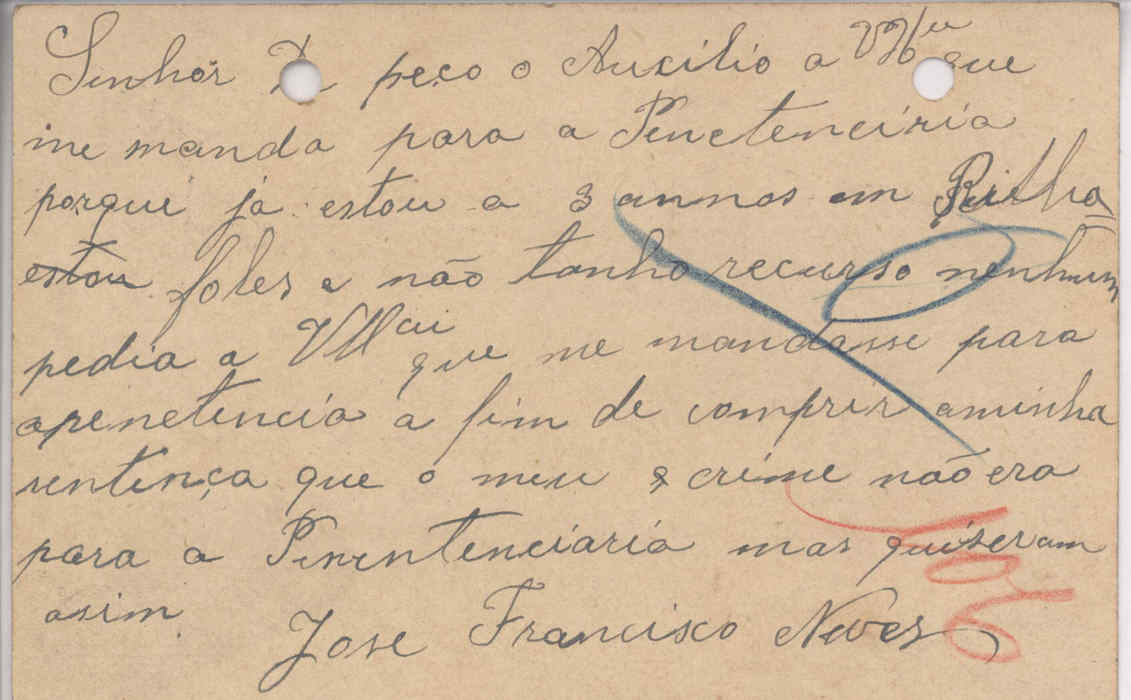 Senhor peço o Auxilio a que
me manda para a Penetenciria
porque já estou a 3 annos em Rilha
estou foles e não tanho recurso nenhum
pedia a que me mandasse para
apenetencia a fim de comprir aminha
sentença que o meu crime não era
para a Penentenciaria mas quiseram
asim
Jose Francisco Neves